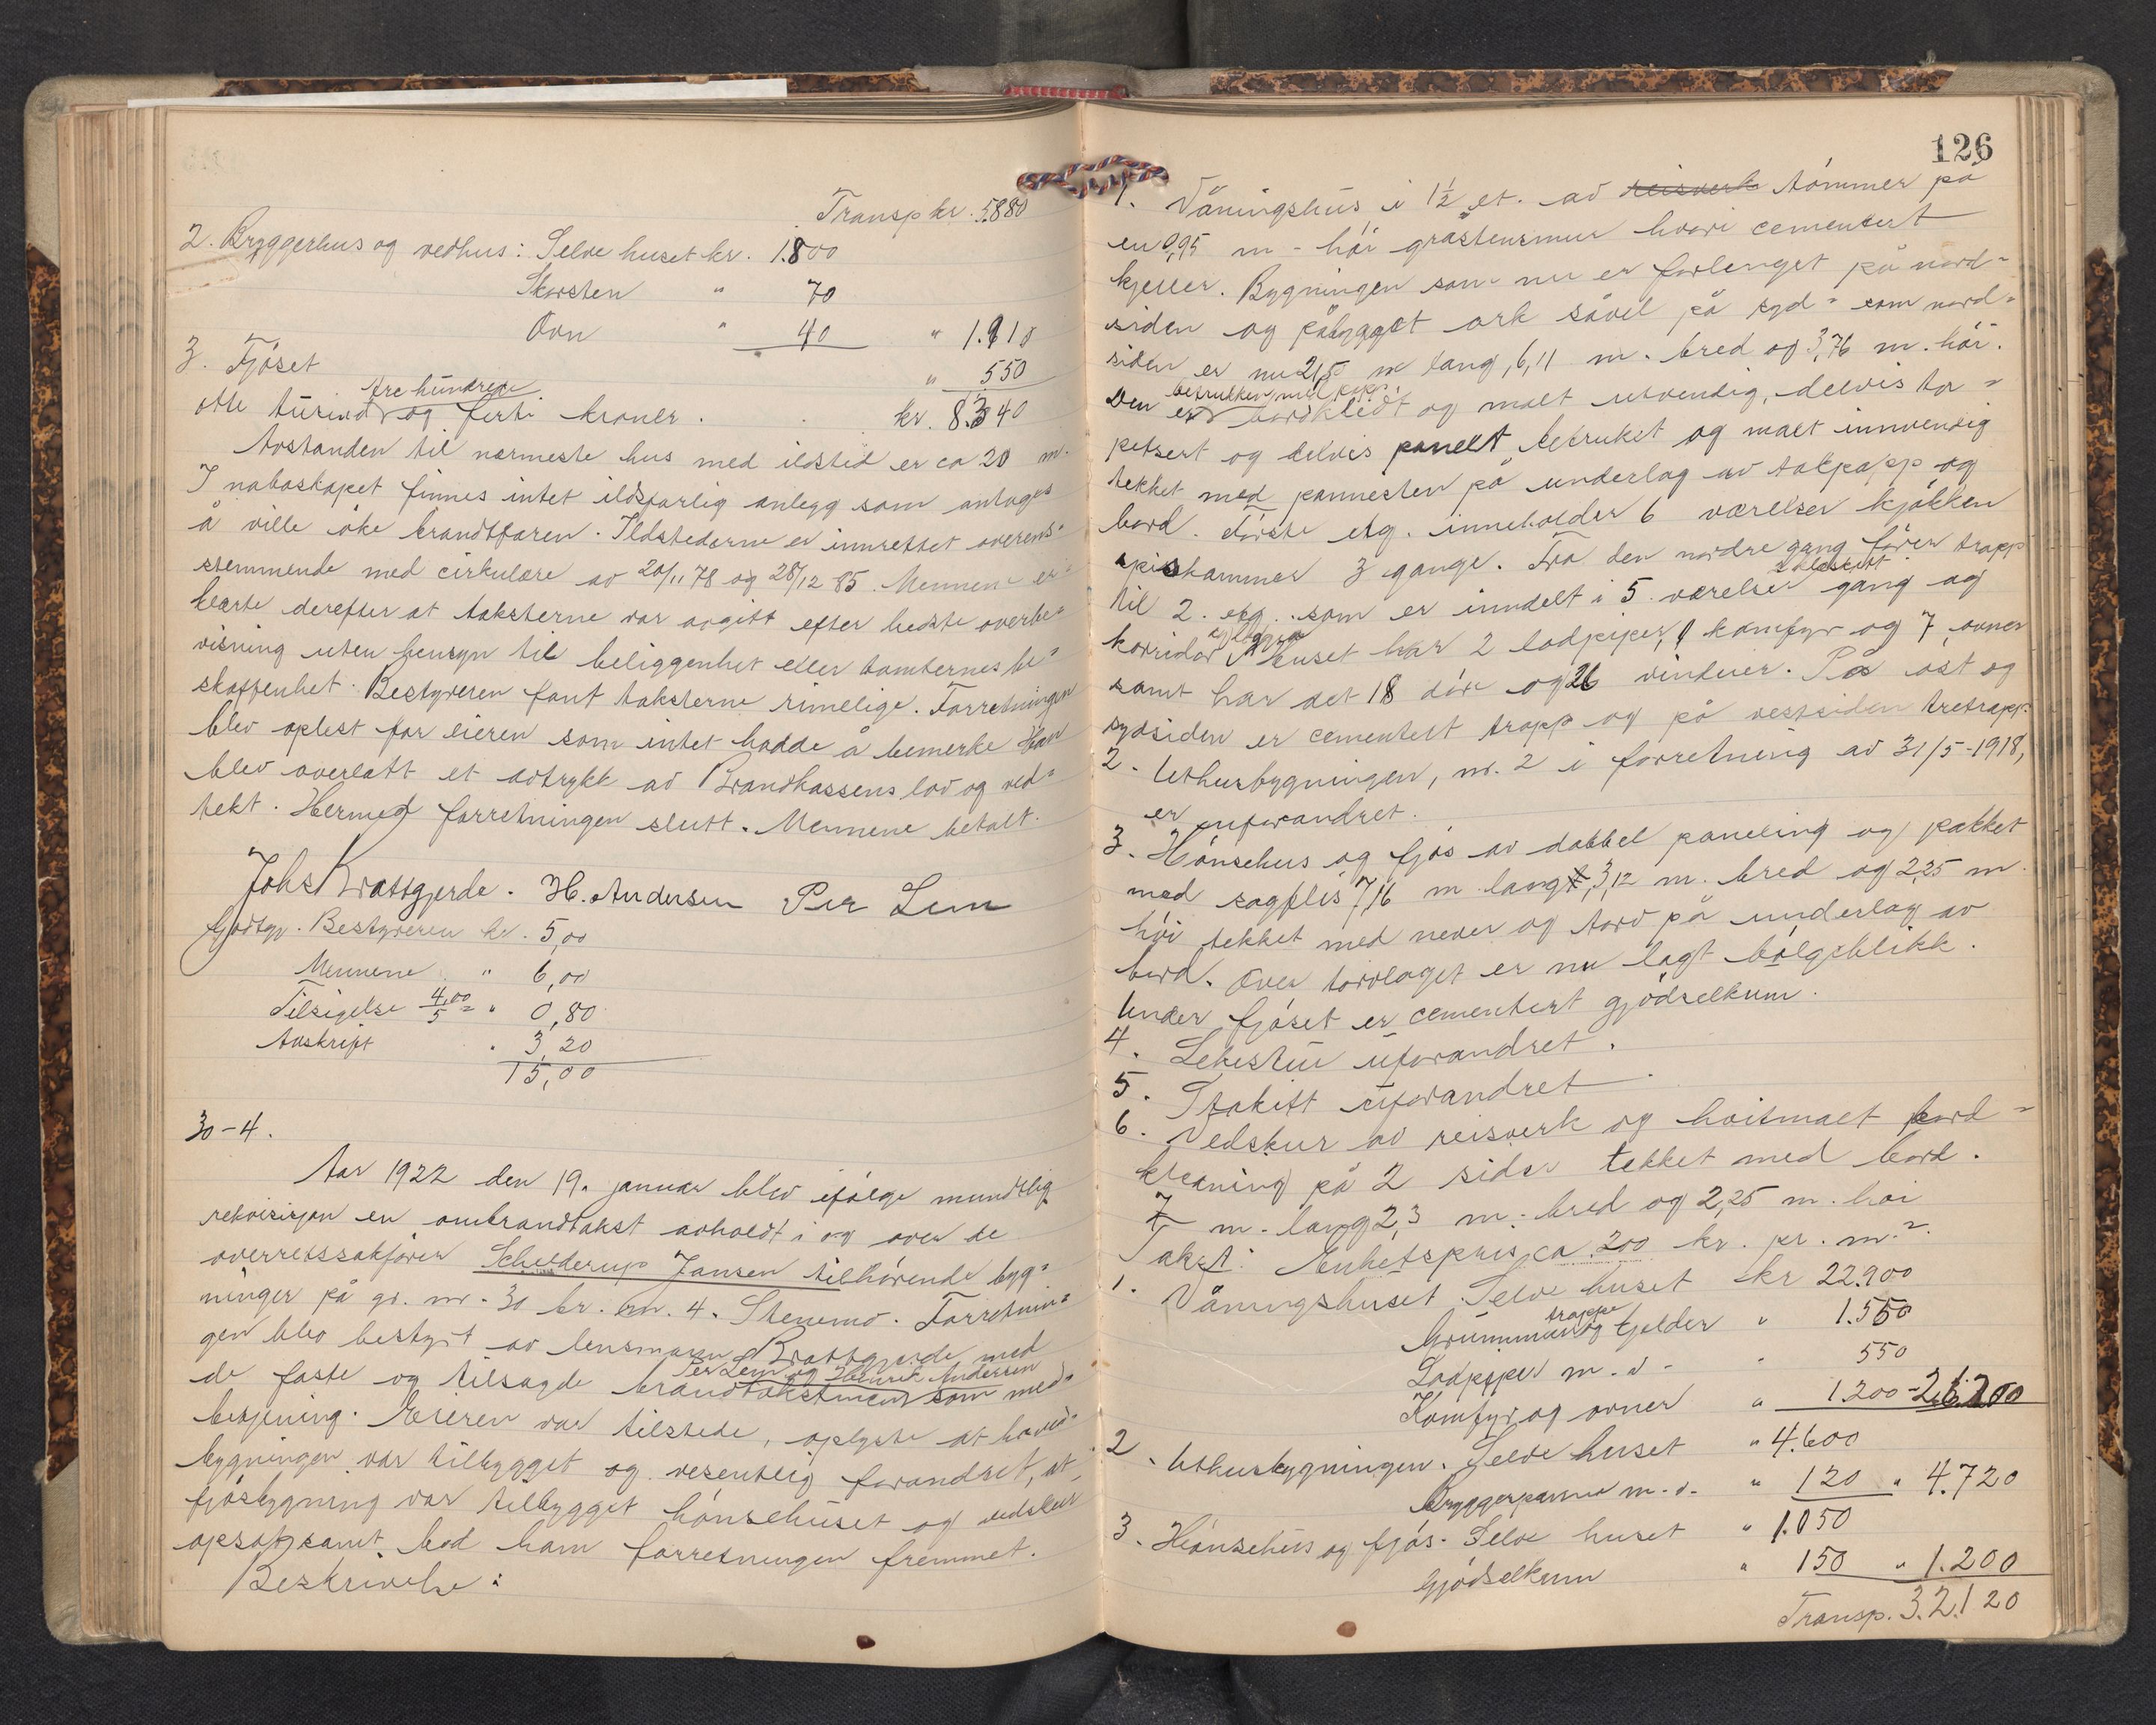 Transp kr. 5880
2. Bryggerhus og vedhus: Selve huset kr. 1.800
Skorsten " 70
Ovn " 40 " 1.910
3. Fjöset " 550
tre hundrede
otte tusind og förti kroner. kr. 8.340
Avstanden til nærmeste hus med ildsted er ca 20 m.
I naboskapet finnes intet ildsfarlig anlegg som antages
å ville öke brandtfaren. Ildstederne er innrettet overens-
stemmende med cirkulære av 20/11 78 og 28/12 85. Mennene er-
klærte derefter at taksterne var avgitt efter bedste overbe-
visning uten hensyn til beliggenhet eller tomternes be-
skaffenhet. Bestyreren fant taksterne rimelige. Forretningen
blev oplest for eieren som intet hadde å bemerke. Han
blev overlatt et avtrykk av Brandkassens lov og ved-
tekt. Hermed forretningen slutt. Mennene betalt.
Johs Brattgjerde. H. Andersen Per Lem
Godtgj. Bestyreren kr. 5,00
Mennene " 6,00
Tilsigelse 4,00/5 = " 0,80
Avskrift " 3,20
15,00
30-4.
Aar 1922 den 19. januar blev ifölge mundtlig
rekvisisjon en ombrandtakst avholdt i og over de
overretssakförer Schelderup Jansen tilhörende byg-
ninger på gr. nr. 30 br. nr. 4. Stenemo. Forretnin-
gen blev bestyrt av lensmann Brattgjerde med
Per Lem og Henrik Andersen
de faste og tilsagde brandtakstmenn som med-
betjening. Eieren var tilstede, oplyste at hoved-
bygningen var tilbygget og vesentlig forandret, at
fjösbygning var tilbygget hönsehuset og vedskur
opsatt samt bad ham forretningen fremmet.
Beskrivelse:
126
1. Våningshus i 1½ et. av reisverk tömmer på
en 0,95 m - höi gråstensmur hvori cementert
kjeller. Bygningen som nu er forlenget på nord-
siden og påbygget ark såvel på syd- som nord-
siden er nu 21,5 m lang, 6,11 m. bred og 3,76 m. höi.
betrukken med papp,
Den er bordkledt og malt utvendig, delvis ta-
petsert og delvis panelt, betruket og malt innvendig
tekket med pannesten på underlag av takpapp og
bord. Förste etg. inneholder 6 værelser kjökken
spiskammer 3 gange. Fra den nordre gang förer trapp
til 2. etg. som er inndelt i 5 værelser gang og
korridor. Huset har 2 lodpiper, 1 komfyr og 7 ovner
samt har det 18 döre og 26 vinduer. På öst og
sydsiden er cementert trapp og på vestsiden tretrapp.
2. Uthusbygningen, nr. 2 i forretning av 31/5-1918,
er uforandret.
3. Hönsehus og fjös av dobbel paneling og pakket
med sagflis 7,16 m lang, 3,12 m. bred og 2,25 m.
höi tekket med never og torv på underlag av
bord. Over torvlaget er nu lagt bölgeblikk.
Under fjöset er cementert gjödselkum.
4. Lekestue uforandret.
5. Stakitt uforandret.
6. Vedskur av reisverk og hvitmalt bord-
kledning på 2 sider tekket med bord.
7 m. lang 2,3 m. bred og 2,25 m. höi
Takst: Enhetspris ca 200 kr. pr. m.²
1. Våningshuset. Selve huset kr 22.900
trappe
Grunnmur og kjelder " 1.550
Lodpiper m.v. " 550
Komfyr og ovner " 1.200 - 26.200
2. Uthusbygningen. Selve huset " 4.600
Bryggerpanne m.v. " 120 " 4.720
3. Hönsehus og fjös. Selve huset " 1.050
Gjödselkum " 150 " 1.200
Transp. 32.120